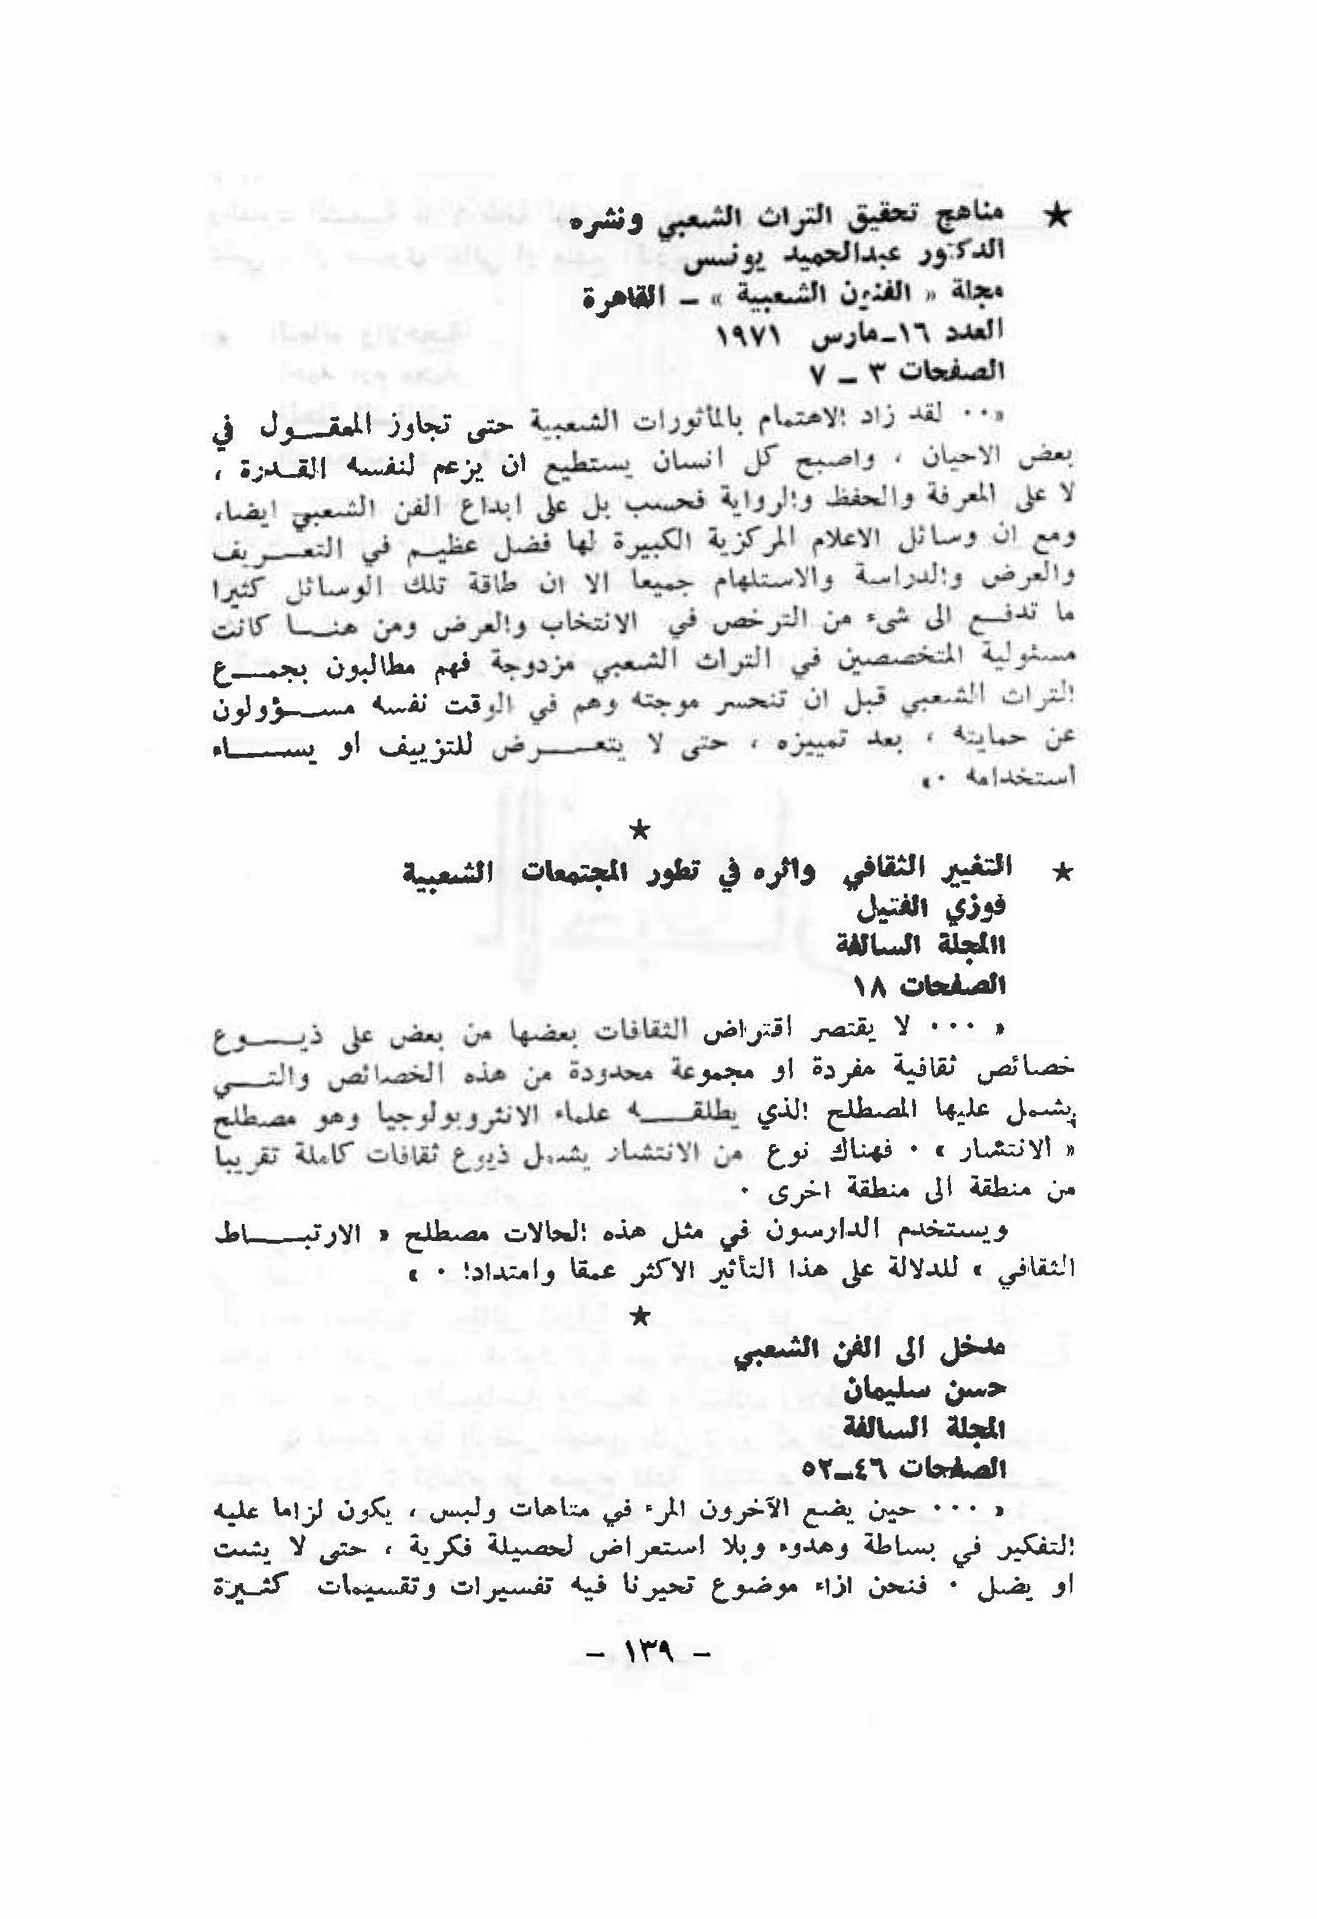 ★ مناهج تحقيق التراث الشعبي ونشره
الدكتور عبدالحميد يونس
مجلة « الفنون الشعبية » ــ القاهرة
العدد ١٦ــمارس ١٩٧١
الصفحات ٣ ــ ٧
«٠٠ لقد زاد الاهتمام بالمأثورات الشعبية حتى تجاوز المعقـــول في
بعض الاحيان ، واصبح كل انسان يستطيع ان يزعم لنفسه القـدرة ،
لا على المعرفة والحفظ والرواية فحسب بل على ابداع الفن الشعبي ايضا،
ومع ان وسائل الاعلام المركزية الكبيرة لها فضل عظيم في التعـــريف
والعرض والدراسة والاستلهام جميعا الا ان طاقة تلك الوسائل كثيرا
ما تدفـع الى شىء من الترخص في الانتخاب والعرض ومن هنـــا كانت
مسئولية المتخصصين في التراث الشعبي مزدوجة فهم مطالبون بجمـــع
التراث الشعبي قبل ان تنحسر موجته وهم في الوقت نفسه مســؤولون
عن حمايته ، بعد تمييزه ، حتى لا يتعــــرض للتزييف او يســـــاء
استخدامه ٠»
★
★ التغيير الثقافي واثره في تطور المجتمعات الشعبية
فوزي الفتيل
االمجلة السالفة
الصفحات ١٨
« ٠٠٠ لا يقتصر اقتراض الثقافات بعضها من بعض على ذيـــوع
خصائص ثقافية مفردة او مجموعة محدودة من هذه الخصائص والتـــي
يشمل عليها المصطلح الذي يطلقـــه علماء الانثروبولوجيا وهو مصطلح
« الانتشار » ٠ فهناك نوع من الانتشار يشمل ذيوع ثقافات كاملة تقريبا
من منطقة الى منطقة اخرى ٠
ويستخدم الدارسون في مثل هذه الحالات مصطلح « الارتبـــاط
الثقافي » للدلالة على هذا التأثير الاكثر عمقا وامتدادا ٠ »
★
مدخل الى الفن الشعبي
حسن سليمان
المجلة السالفة
الصفحات ٤٦ــ٥٢
« ٠٠٠ حين يضع الآخرون المرء في متاهات ولبس ، يكون لزاما عليه
التفكير في بساطة وهدوء وبلا استعراض لحصيلة فكرية ، حتى لا يشت
او يضل ٠ فنحن ازاء موضوع تحيرنا فيه تفسيرات وتقسيمات كثـيرة
– ١٣٩ –